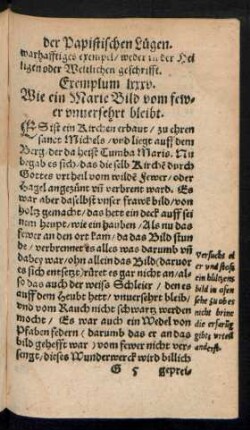 der Papistischen Lügen.
warhafftiges exempel/ weder in der Hei
ligen oder Weltlichen geschrifft.
Exemplum lxxv.
Wie ein Marie Bild vom few-
er vnuersehrt bleibt.
ES ist ein Kirchen erbaut/ zu ehren
sanct Michels/ vnd ligt auff dem
Berg/ der da heist Tumba Maris. Nu
begab es sich/ das die selb Kirche durch
Gottes vrtheil vom wilde Fewer/ oder
Hagel angezünt vñ verbrent ward. Es
war aber daselbst vnser frawe bild/ von
holtz gemacht/ das hett ein deck auff sei
nem heupt/ wie ein hauben/ Als nu das
fewer an den ort kam/ da das Bild stun
de/ verbrennet es alles was darumb vñ
dabey war/ ohn allein das Bild/ daruor
es sich entsetzt/ rüret es gar nicht an/ al-
so das auch der weiß Schleier/ den es
auff dem Heubt hett/ vnuersehrt bleib/
vnd vom Rauch nicht schwartz werden
mocht/ Es war auch ein Wedel von
Pfaben federn/ darumb das er an das
bild gehefft war/ vom fewer nicht ver-
sengt/ dieses Wunderwerck wird billich
G 5 geprei-
Versucht
er vnd stoß
ein hültzens
bild in ofen
sehe zu ob es
nicht brine
die erfarũg
gibts vil
anderst.